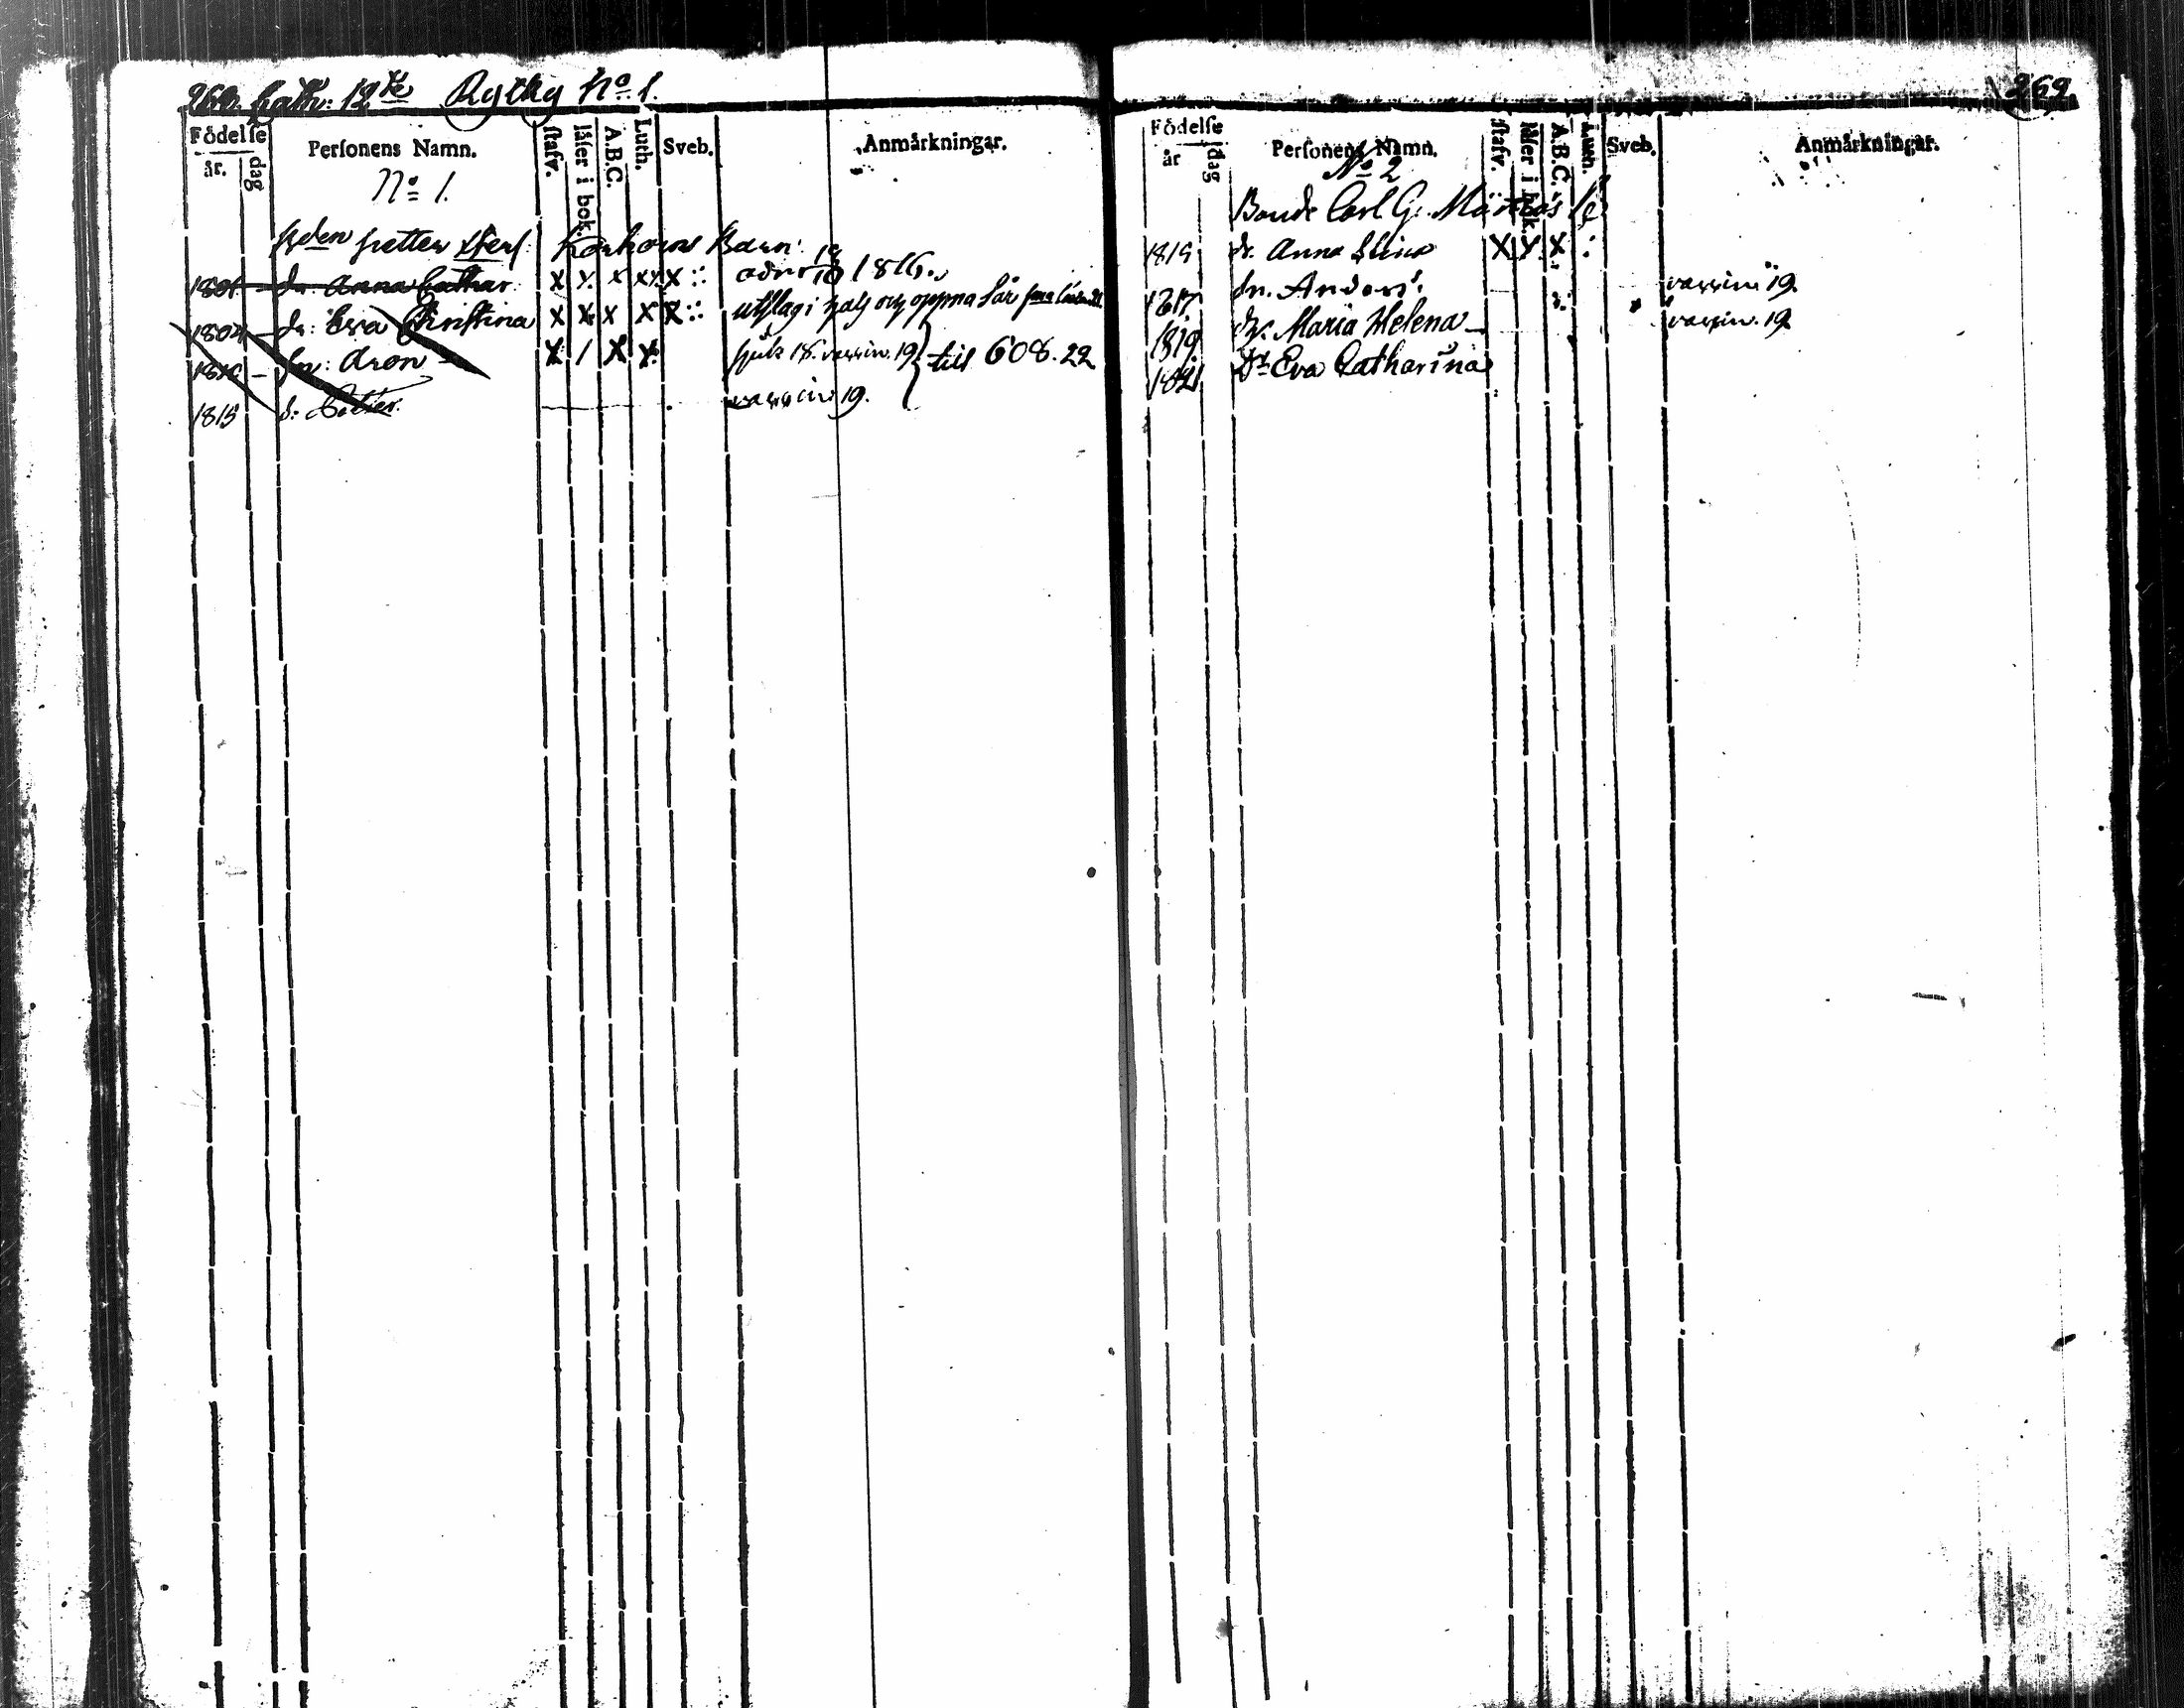 Rythy No 1.
Födelse
år. dag
Personens Namn.
stafv.
läser i bok.
A.B.C.
Luth.
Sveb.
Anmärkningar.
No 1.
Petter Barn:
1801 dr. Anna Cathar. x x x xx x 1816.
1804 dr: Eva Christina x x x x x utslag i och öppna sår
sn: Aron x / x x sjuk 18. vaccin. 19 till 608. 22
1815 s: Petter. vaccin 19.
269
Födelse
år dag
Personens Namn.
stafv.
läser i bok.
A.B.C.
Luth.
Sveb.
Anmärkningar.
No 2
Bonde Carl G.
1815 dr. Anna Stina x x x
1817 sn. Anders. vaccin 19.
1819 dr. Maria Helena vaccin. 19
1821 Dr Eva Catharina